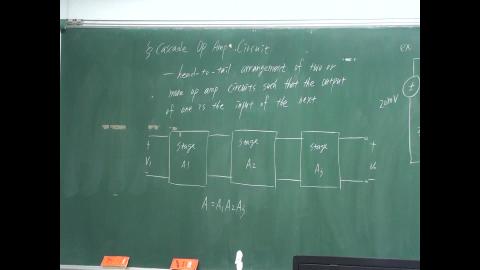 § Cascade Op Amp Circuit
— head-to-tail arrangement of two or
more op amp circuits such that the output
of one is the input of the next
+ V₁ - Stage A1 Stage A2 Stage A3 + Vo -
A = A₁A₂A₃
ex
+
20mV